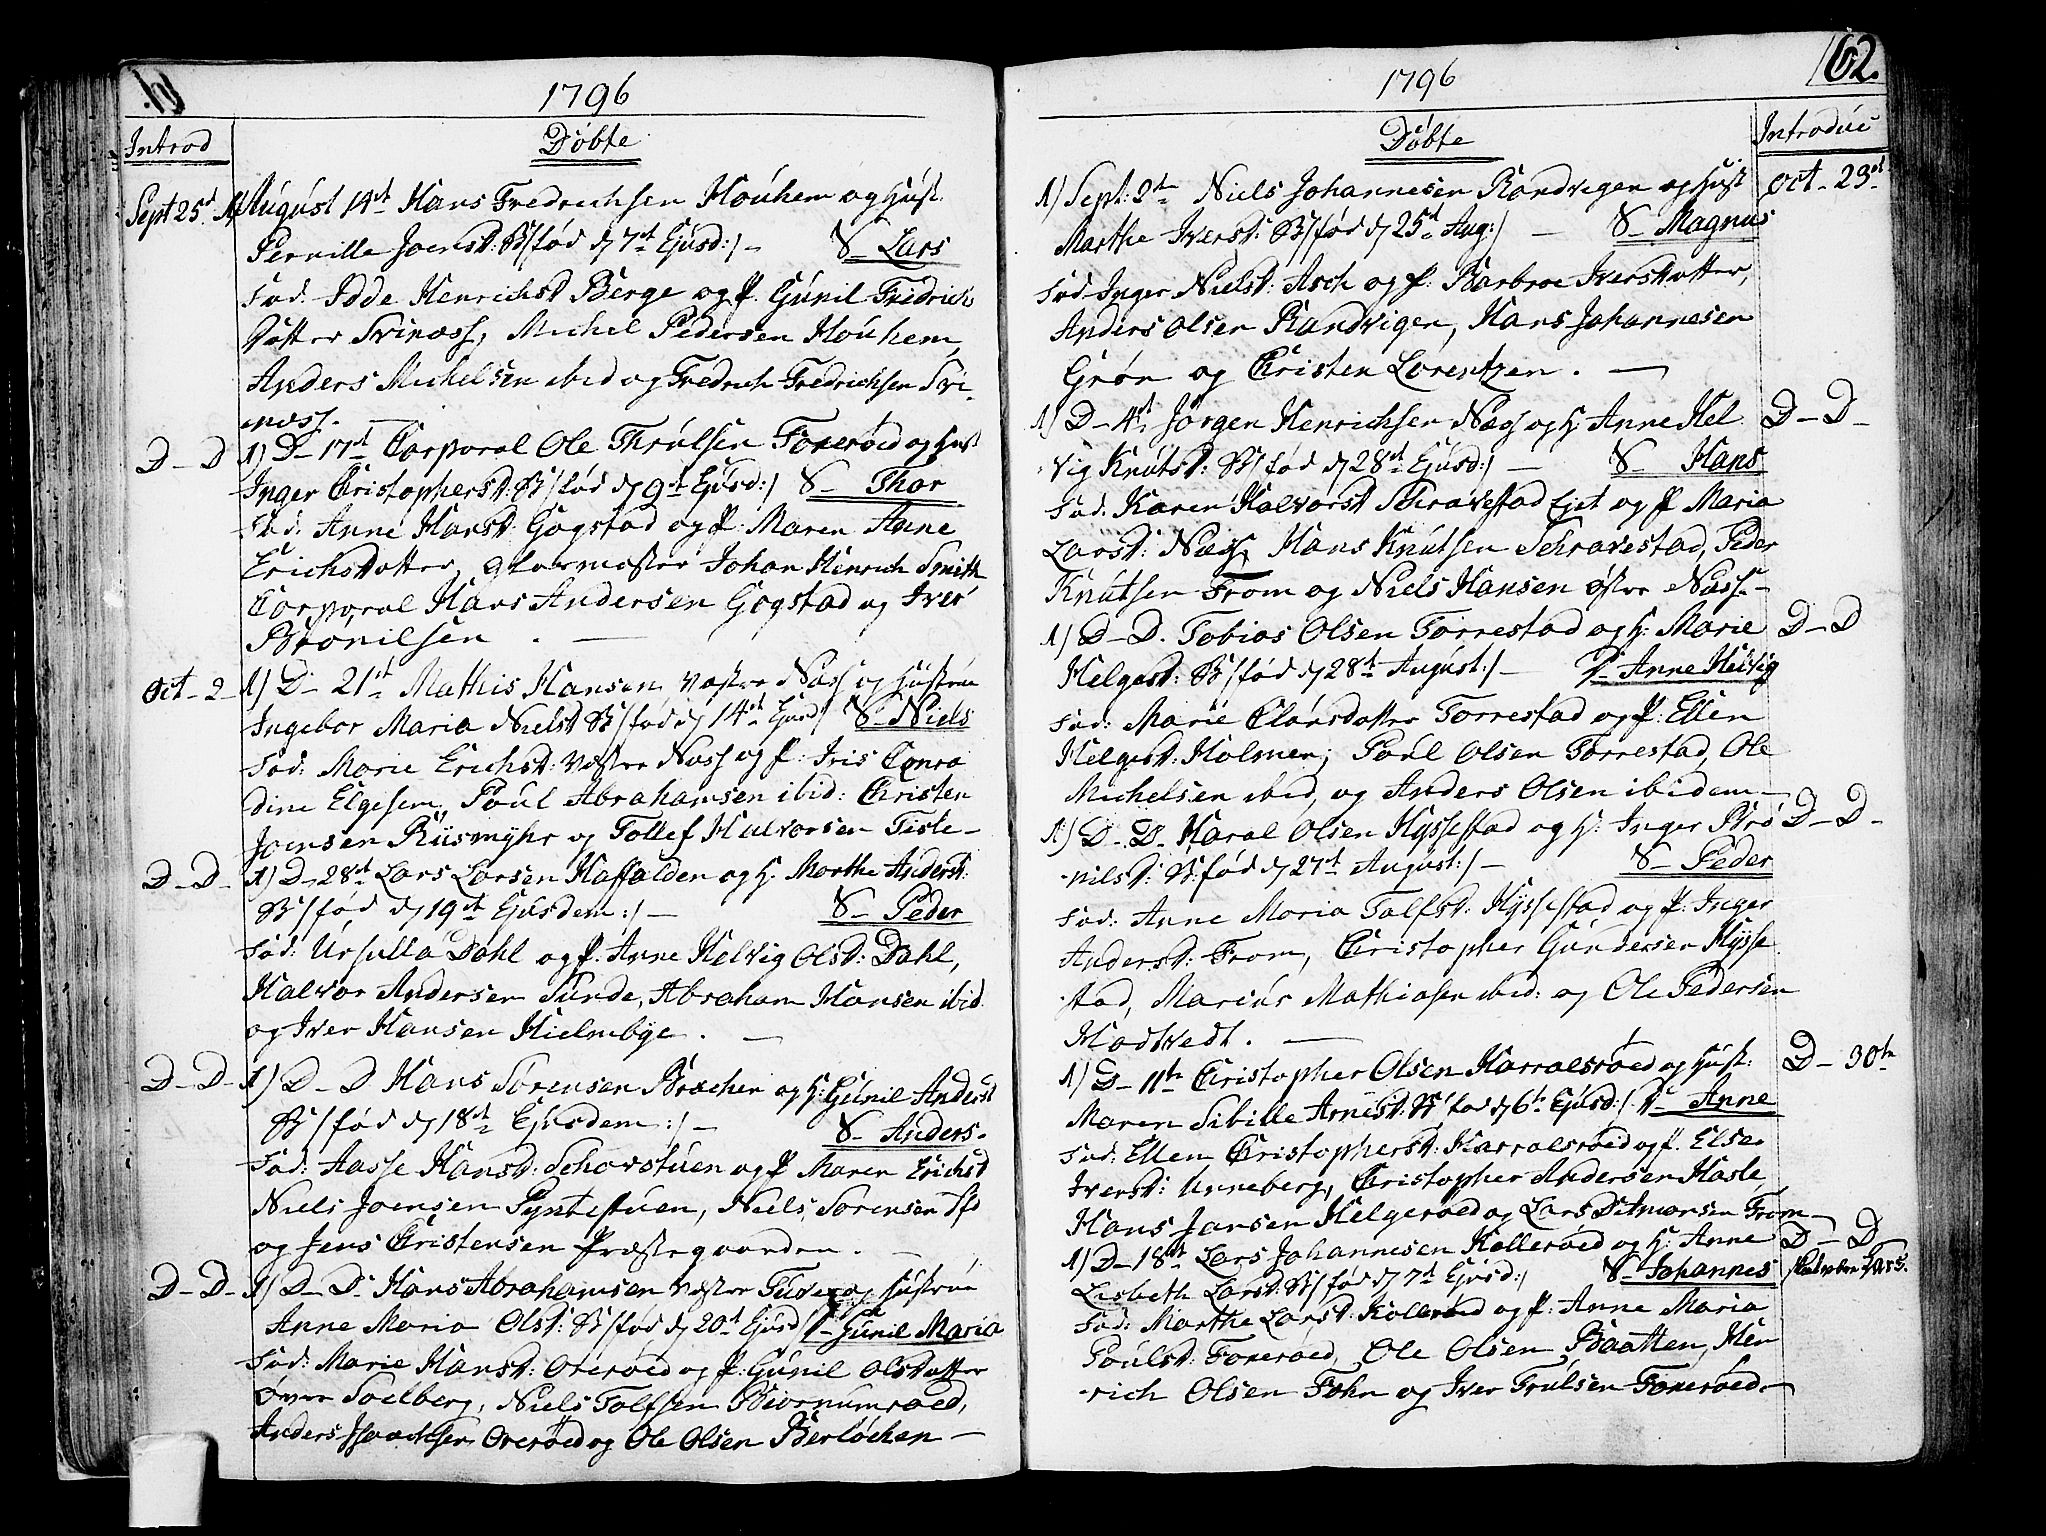 61.
1796
Introd
Döbte
Sept 25d. 1) August 14d Hans Fredrichsen Houhem og Hust.
Pernille Joensd: B/ fød d 7d Ejusd:/ - S- Lars
Fad. Idde Henrichsd Berge og P. Gunil Fredrich
Datter Svinæss, Michel Pedersen Houhem,
Anders Michelsen ibid og Fredrich Fredrichsen Svi-
næss.
D-D 1) D- 17d Corporal Ole Thrulsen Foxerød og Hust
Inger Christophersd: B/ fød d 9d Ejusd:/ S- Thor
Fad: Anne Hansd: Gogstad og P: Maren Anne
Erichsdatter, Glarmester Johan Henrich Smith
Corporal Hans Andersen Gogstad og Iver
Bronilsen . -
Oct- 2- 1) D- 21d Mathis Hansen Vestre Næss og Hustrue
Ingebor Maria Nielsd B/ fød d 14d Ejusd/ S- Niels
Fad: Marie Erichsd: Vestre Næss og P: Iris Conra
dine Elgesem, Poul Abrahamsen ibid: Christen
Joensen Riismyhr og Tollef Halvorsen Feste-
D-D- 1) D- 28d Lars Larsen Haffalden og H. Marthe Andersd:
B/ fød d 19d Ejusdem:/ - S- Peder
Fad: Ursulla Dahl og P. Anne Helvig Olsd: Dahl,
Halvor Andersen Sunde, Abraham Hansen ibid.
og Iver Hansen Hielmbye. -
D-D- 1) D- D Hans Sørensen Brechen og H: Gunil Andersd
B/ fød d 18d Ejusdem:/ - S- Anders-
Fad: Aasse Hansd: Schovstuen og P Maren Erichsd
Niels Joensen Pyntestuen, Niels Sørensen
og Jens Christensen Præstegaarden. -
D-D- 1) D- D- Hans Abrahamsen Vestre Fuver og Hustrue
Anne Maria Olsd: B/ fød d 20d Ejusd/ P- Gunil Maria
Fad: Marie Hansd: Overøed og P: Gunil Olsdatter
øvre Soelberg, Niels Tolfsen Biørnumrøed,
Anders Isaachsen Overøed og Ole Olsen Berløchen -
62.
1796
Döbte
Introduc
1) Sept: 2d Niels Johannesen Randvigen og Hust Oct- 23d
Marthe Iversd: B/ fød d 25d Aug:/ - S- Magnus
Fad- Inger Nielsd: Asch og P: Barbroe Iversdatter,
Anders Olsen Randvigen, Hans Johannesen
Grøn og Christen Lorentzen. -
1) D- 4d Jørgen Henrichsen Næss og H: Anne Hel D-D-
vig Knutsd: B/ fød d 28d Ejusd:/ - S- Hans
Fad: Karen Halvorsd Schravestad Ejet og P Maria
Larsd: Næss, Hans Knutsen Schravestad, Peder
Knutsen From og Niels Hansen østre Næss-
1) D- D. Tobias Olsen Torrestad og H: Marie D-D
Helgesd: B/ fød d 28d August:/ - P- Anne Helvig
Fad: Marie Clausdatter Torrestad og P: Ellen
Helgesd: Holmen, Poul Olsen Torrestad, Ole
Michelsen ibid, og Anders Olsen ibidem -
1) D- D. Haral Olsen Hyssestad og H: Inger Bro D-D-
nilsd: B: fød d 27d August:/ - S- Peder
Fad: Anne Maria Tolfsd: Hyssestad og P: Inger
Andersd: From, Christopher Gundersen Hysse
stad, Marius Mathiasen ibid: og Ole Pedersen
Hodtvedt. -
1) D- 11te Christopher Olsen Harralsrøed og Hust: D- 30te
Maren Sibille Arnesd: B/ fød d 6te Ejusd:/ P- Anne
Fad: Ellen Christophersd: Harralsrøed og P. Else
Iversd: Unneberg, Christopher Andersen Hasle
Hans Jansen Helgerøed og Lars Ditmarsen From-
1) D- 18d Lars Johannesen Kollerøed og H: Anne D-D
Lisbeth Larsd: B/ fød d 7d Ejusd:/ S- Johannes
Fad: Marthe Larsd: Kollerøed og P: Anne Maria
Poulsd: Foxerøed, Ole Olsen Baatten, Hen
rich Olsen Fohn og Iver Trulsen Foxerøed-